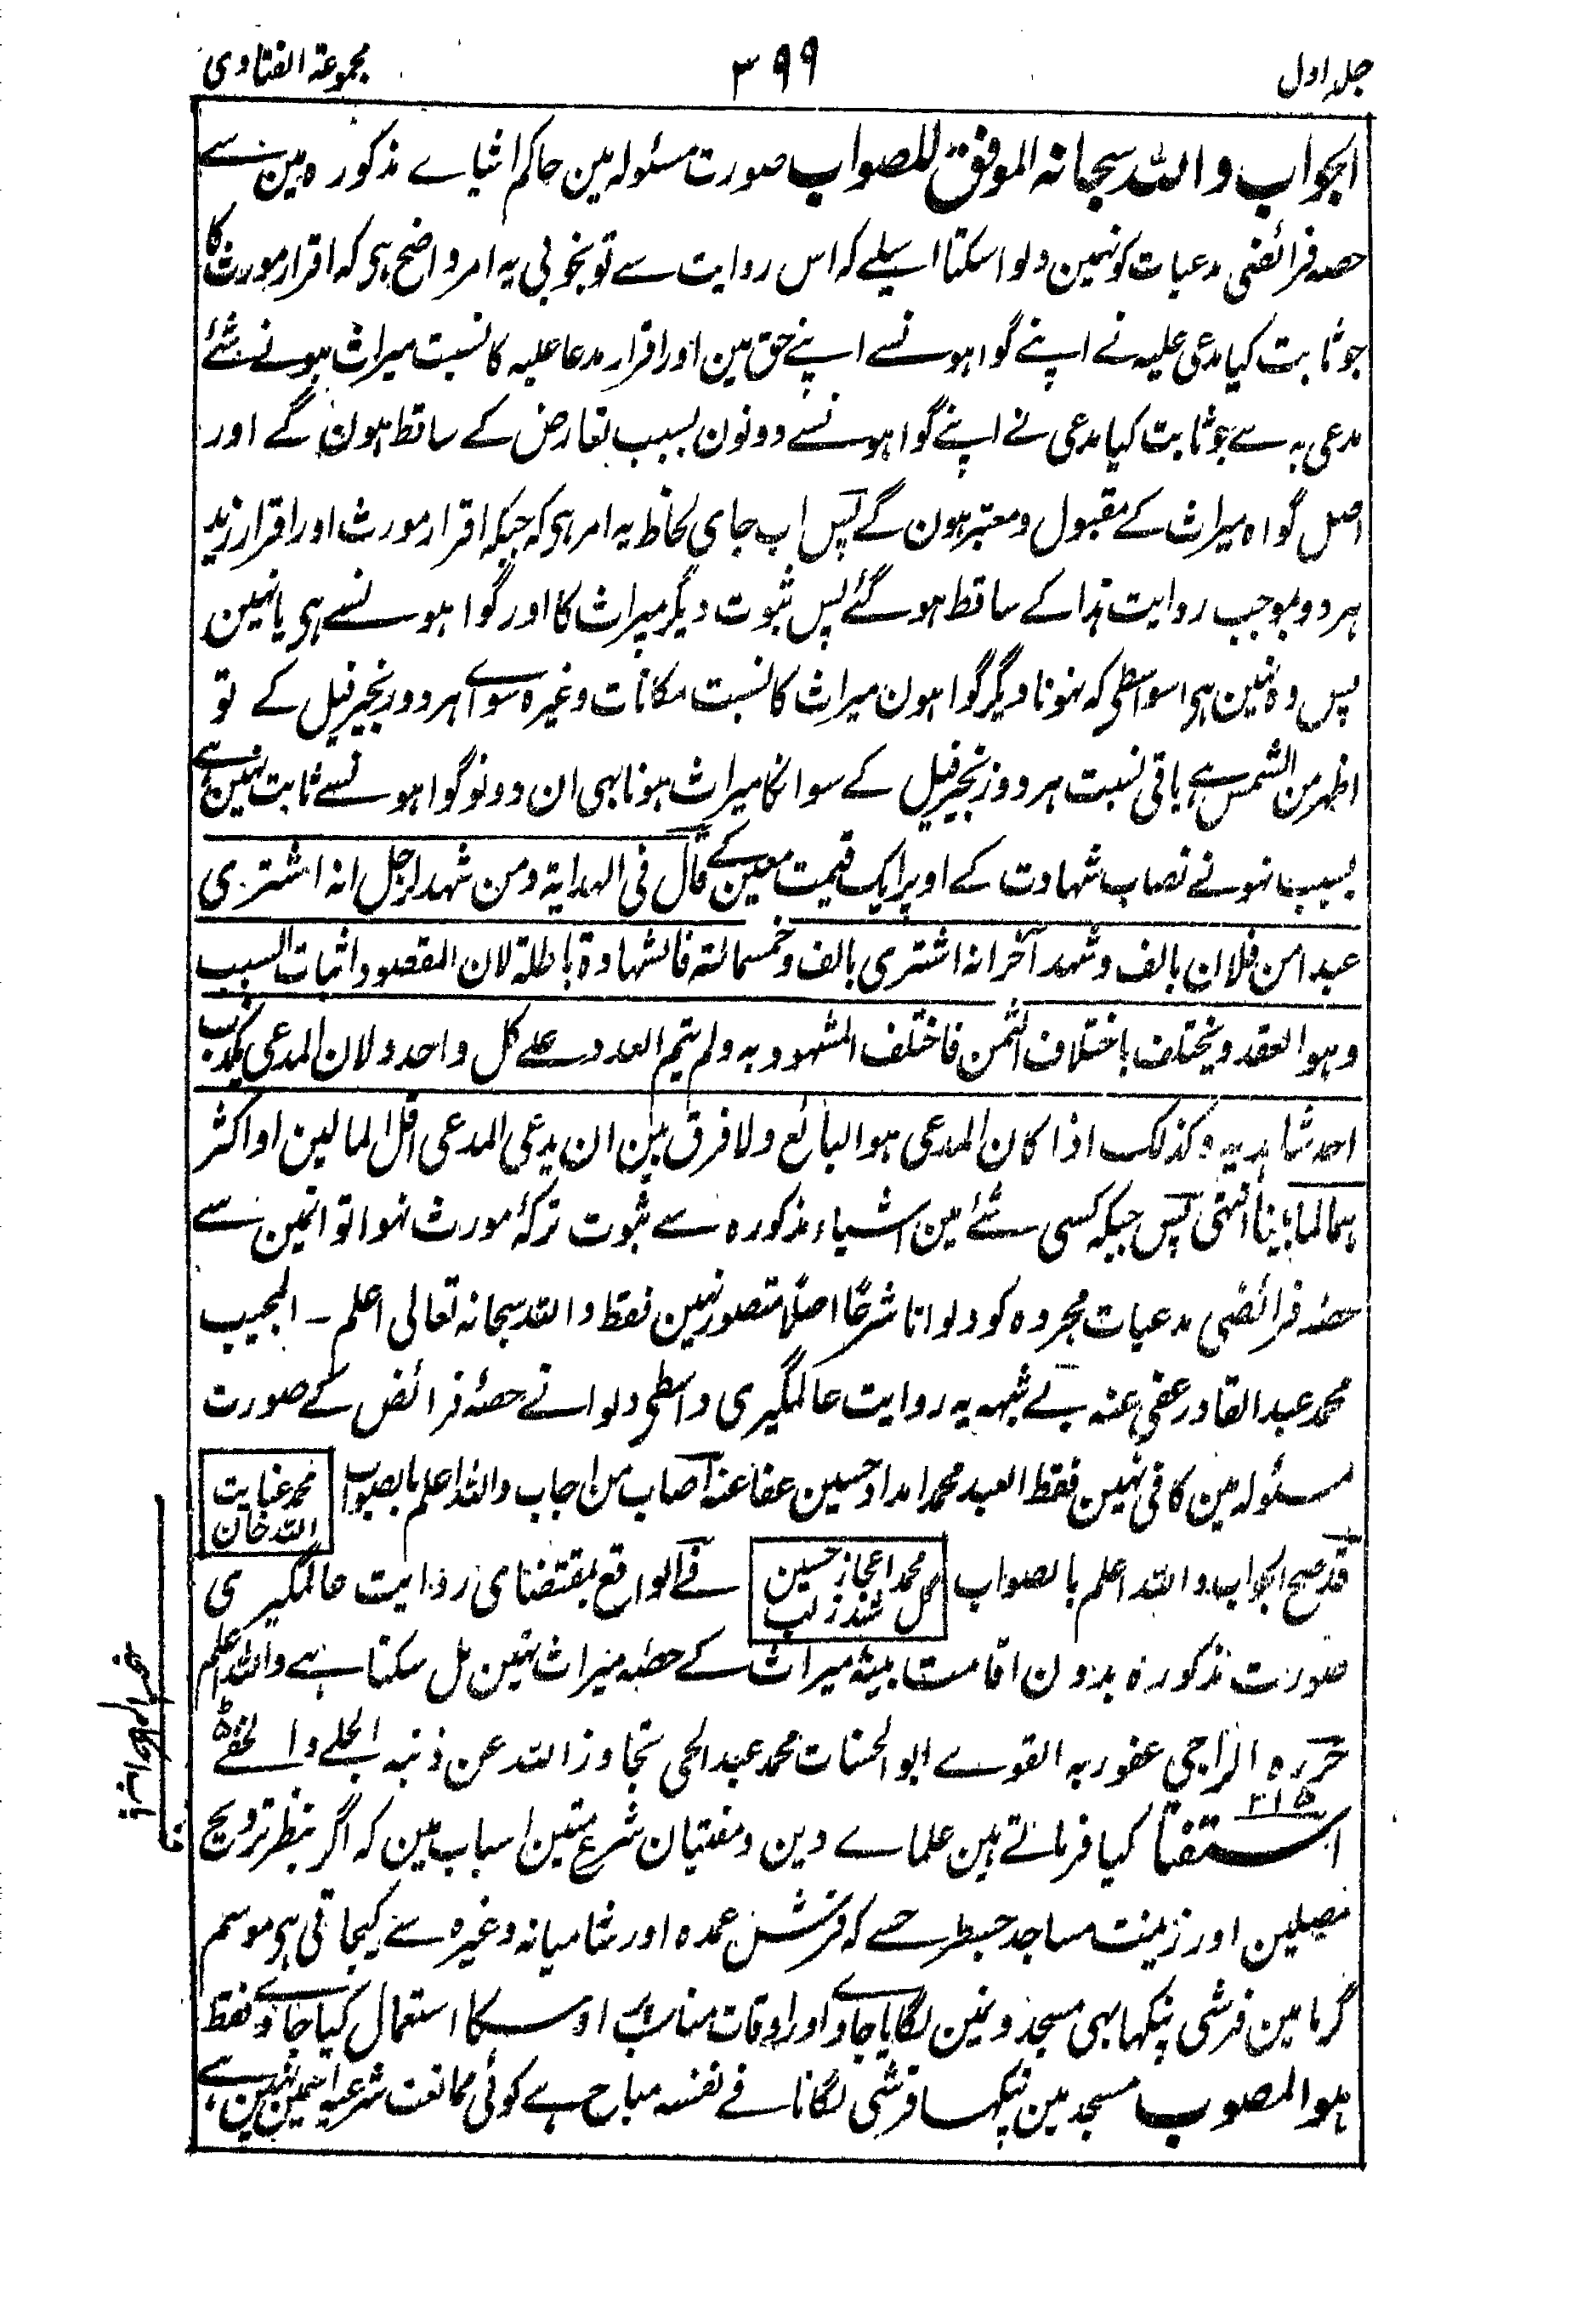 جلد اول
۳۹۹
مجموعۃ الفتاوی
الجواب واللہ سبحانہ الموفق للصواب صورت مسئولہ مین حاکم اشیاے مذکورہ مین سے
حصہ فرائضی مدعیات کو نہین دلواسکتا اسیلے کہ اس روایت سے تو بخوبی یہ امر واضح ہی کہ اقرار مورث کا
جو ثابت کیا مدعی علیہ نے اپنے گواہونسے اپنے حق مین اور اقرار مدعا علیہ کا نسبت میراث ہونے شئے
مدعی بہ سے جو ثابت کیا مدعی نے اپنے گواہونسے دونون بسبب تعارض کے ساقط ہون گے اور
اصل گواہ میراث کے مقبول و معتبر ہون گے پس اب جای لحاظ یہ امر ہی کہ جبکہ اقرار مورث اور اقرار زید
ہر دو بموجب روایت ہذا کے ساقط ہو گئے پس ثبوت دیگر میراث کا اور گواہونسے ہی یا نہین
پس وہ نہین ہی اسواسطی کہ نہونا دیگر گواہون میراث کا نسبت مکانات وغیرہ سواے ہر دو زنجیر فیل کے تو
اظہر من الشمس ہے باقی نسبت ہر دو زنجیر فیل کے سو انکا میراث ہونا بہی ان دونو گواہونسے ثابت نہین ہے
بسبب نہونے نصاب شہادت کے اوپر ایک قیمت معین کے قال فی الہدایۃ ومن شہد لرجل انہ اشتری
عبدا من فلان بالف وشہد آخر انہ اشتری بالف وخمسمائۃ فالشہادۃ باطلۃ لان المقصود اثبات السبب
وہو العقد ویختلف باختلاف الثمن فاختلف المشہود بہ ولم یتم العدد علے کل واحد ولان المدعی یکذب
احد شاہدیہ وکذلک اذا کان المدعی ہو البائع ولا فرق بین ان یدعی المدعی اقل المالین او اکثر
ہما لما بینا انتہی پس جبکہ کسی شئے مین اشیاء مذکورہ سے ثبوت ترکۂ مورث نہوا تو انمین سے
حصۂ فرائضی مدعیات مجروہ کو دلوانا شرعًا اصلًا متصور نہین فقط واللہ سبحانہ تعالی اعلم ۔ المجیب
محمد عبد القادر عفی عنہ بے شبہہ یہ روایت عالمگیری واسطی دلوانے حصۂ فرائض کے صورت
مسئولہ مین کافی نہین فقط العبد محمد امداد حسین عفا عنہ اصاب من اجاب واللہ اعلم بالصواب
محمد عنایت اللہ خان
قد صح الجواب واللہ اعلم بالصواب
محمد اعجاز حسین
فے الواقع بمقتضای روایت عالمگیری
صورت مذکورہ بدون اقامت بینۂ میراث کے حصہ میراث نہین مل سکتا ہے واللہ اعلم
حررہ الراجی عفو ربہ القوے ابو الحسنات محمد عبد الحی تجاوز اللہ عن ذنبہ الجلے والخفے
۲۱۵
استفتا کیا فرماتے ہین علماے دین و مفتیان شرع متین اسباب مین کہ اگر بنظر ترویح
مصلین اور زینت مساجد جسطرح سے کہ فرش عمدہ اور شامیانہ وغیرہ سے کیجاتی ہی موسم
گرما مین فرشی پنکہا بہی مسجدونمین لگایا جاوے اور اوقات مناسب اوسکا استعمال کیا جاوے فقط
ہو المصوب مسجد مین پنکہا فرشی لگانا فے نفسہ مباح ہے کوئی ممانعت شرعیہ اسمین نہین ہے